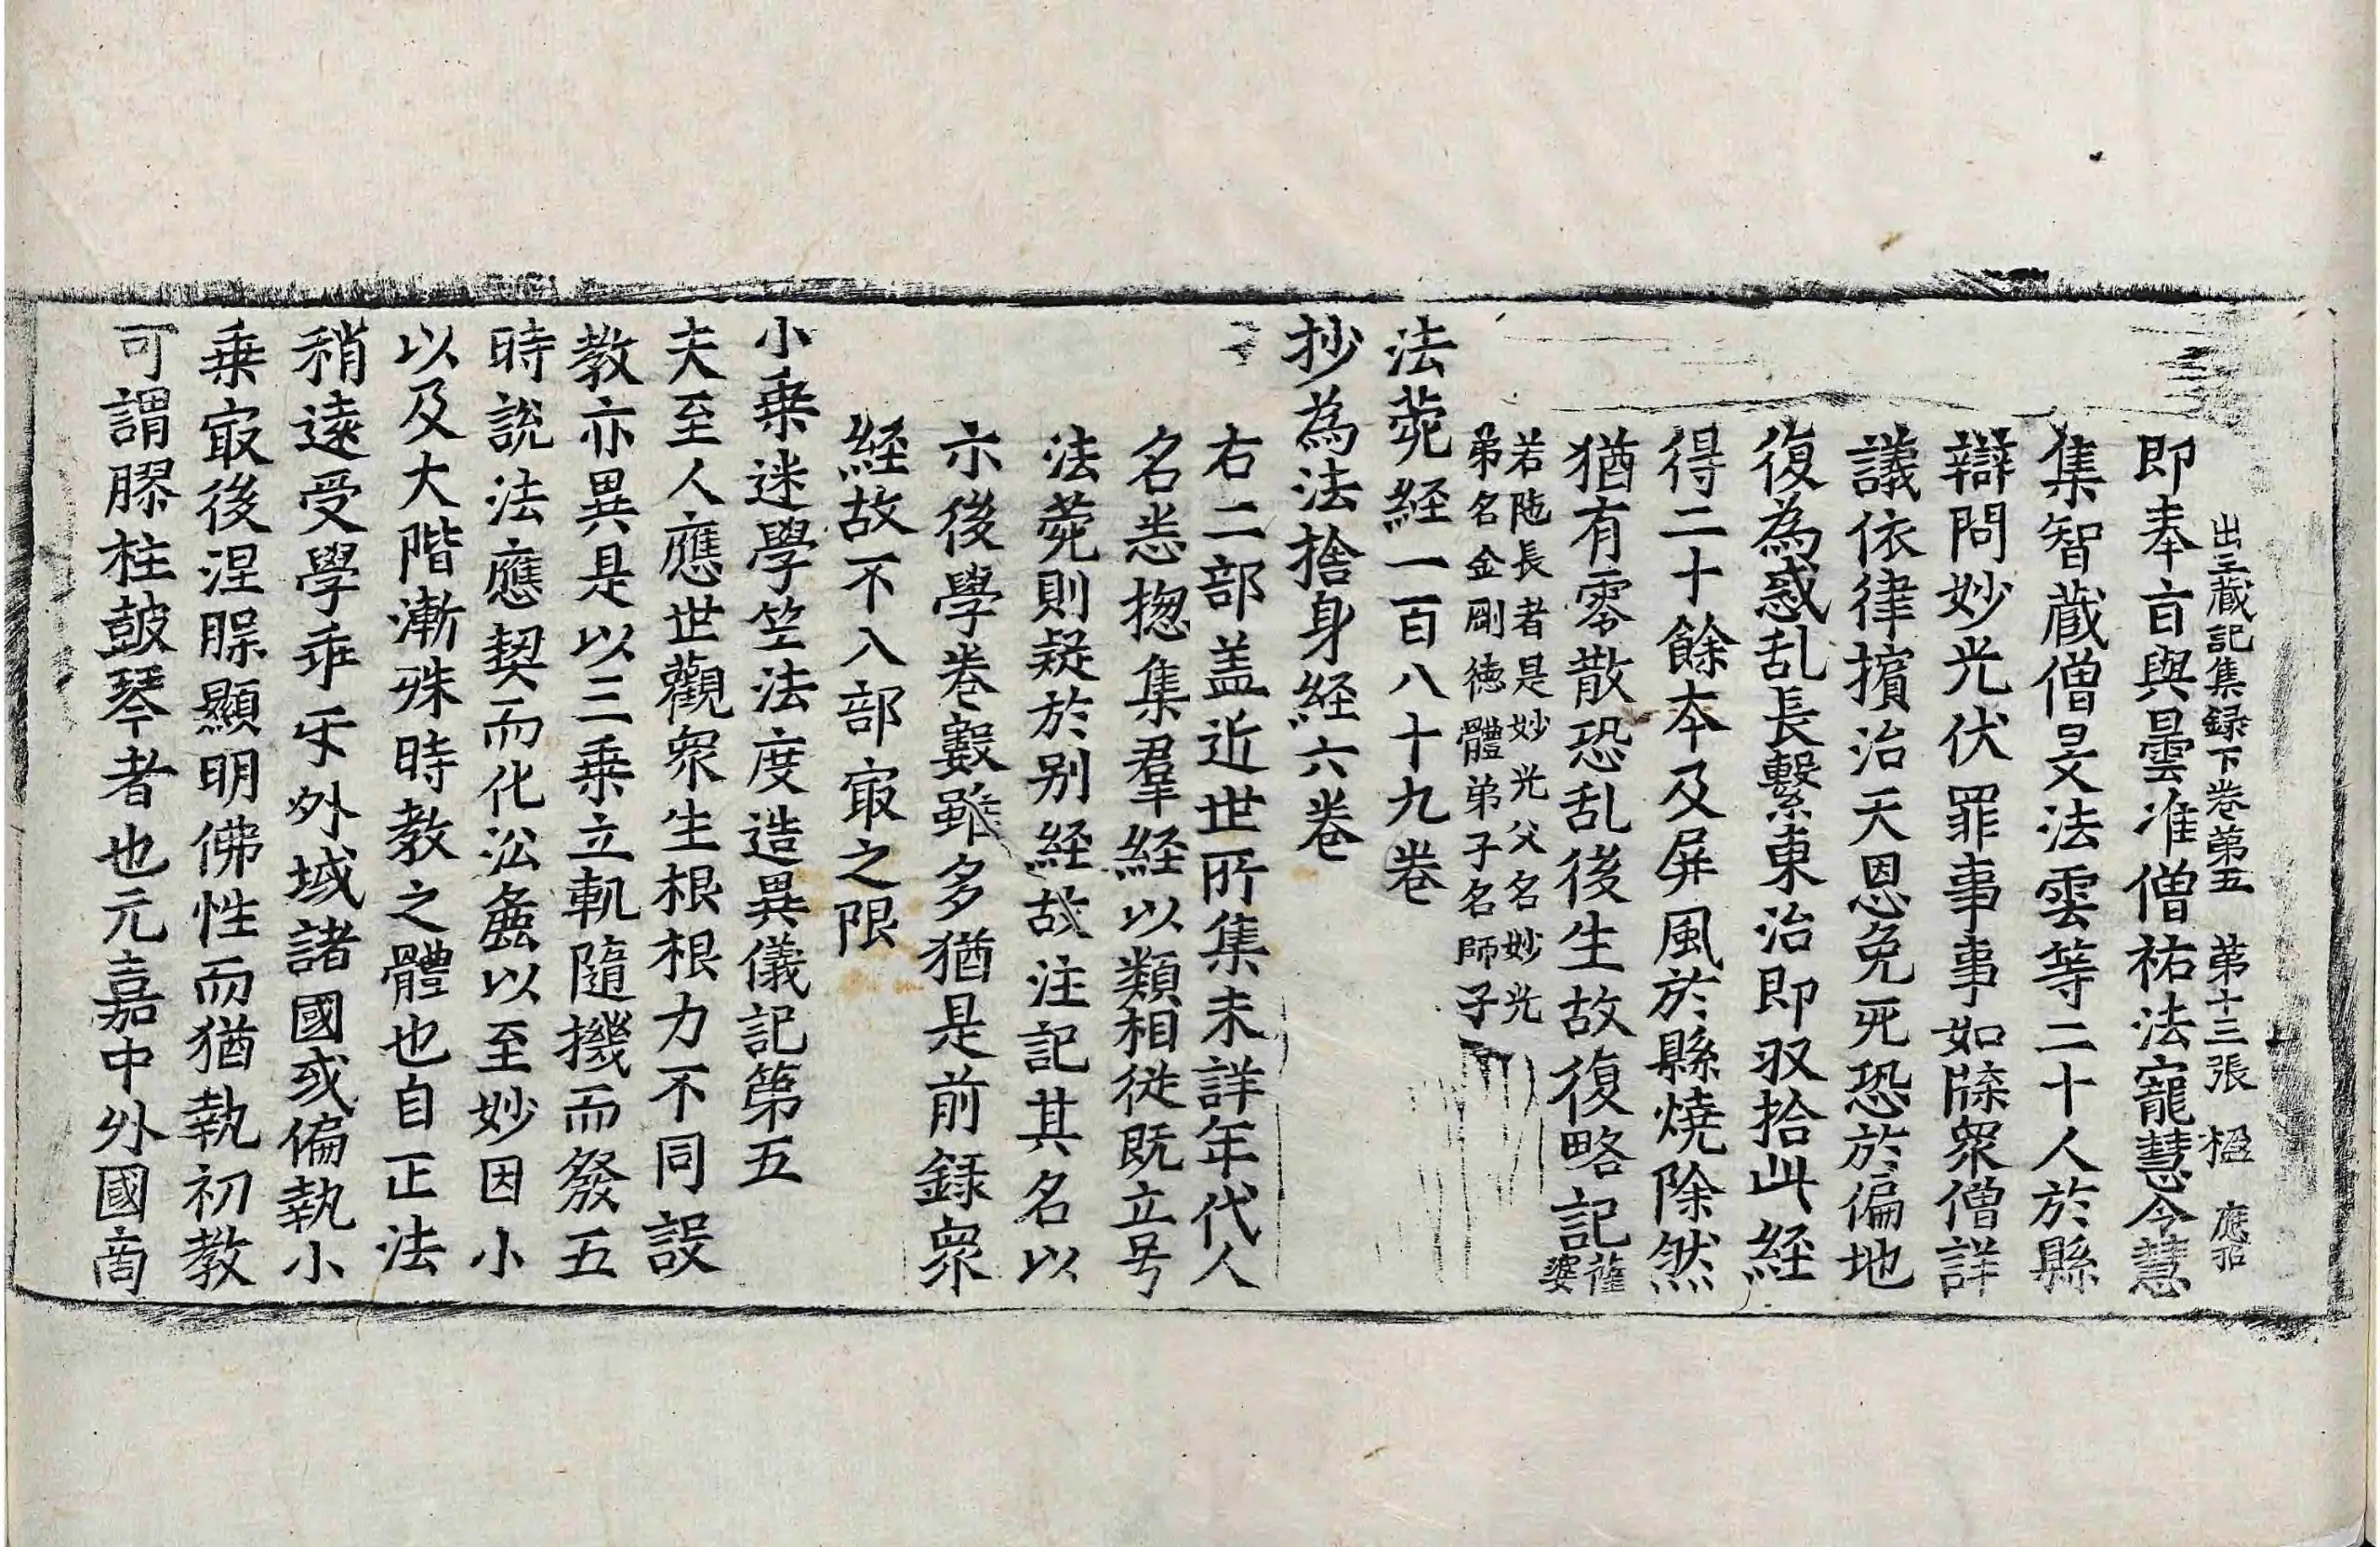 出三蔵記集録下卷苐五　苐十三張　楹　應㧕
即奉㫖與曇准僧祐法寵慧令慧
集智蔵僧旻法雲等二十人於縣
辯問妙光伏罪事事如牒衆僧詳
議依律擯治天恩免死恐於偏地
復為惑乱長繫東治即収拾此経
得二十餘本及屏風於縣燒除然
猶有零散恐乱後生故復略記薩婆
若陁長者是妙光父名妙光
弟名金剛徳體弟子名師子
法菀経一百八十九卷
抄為法捨身経六卷
右二部盖近世所集未詳年代人
名悉揔集羣経以類相従既立号
法菀則疑於别経故注記其名以
示後學卷數雖多猶是前録衆
経故不入部㝡之限
小乗迷學竺法度造異儀記第五
夫至人應世觀衆生根根力不同設
教亦異是以三乗立軌隨機而發五
時說法應契而化㳂麁以至妙因小
以及大階漸殊時教之體也自正法
稍遠受學乖𤓰外域諸國或偏執小
乗㝡後涅槃顯明佛性而猶執初教
可謂膠柱皷琴者也元嘉中外國商